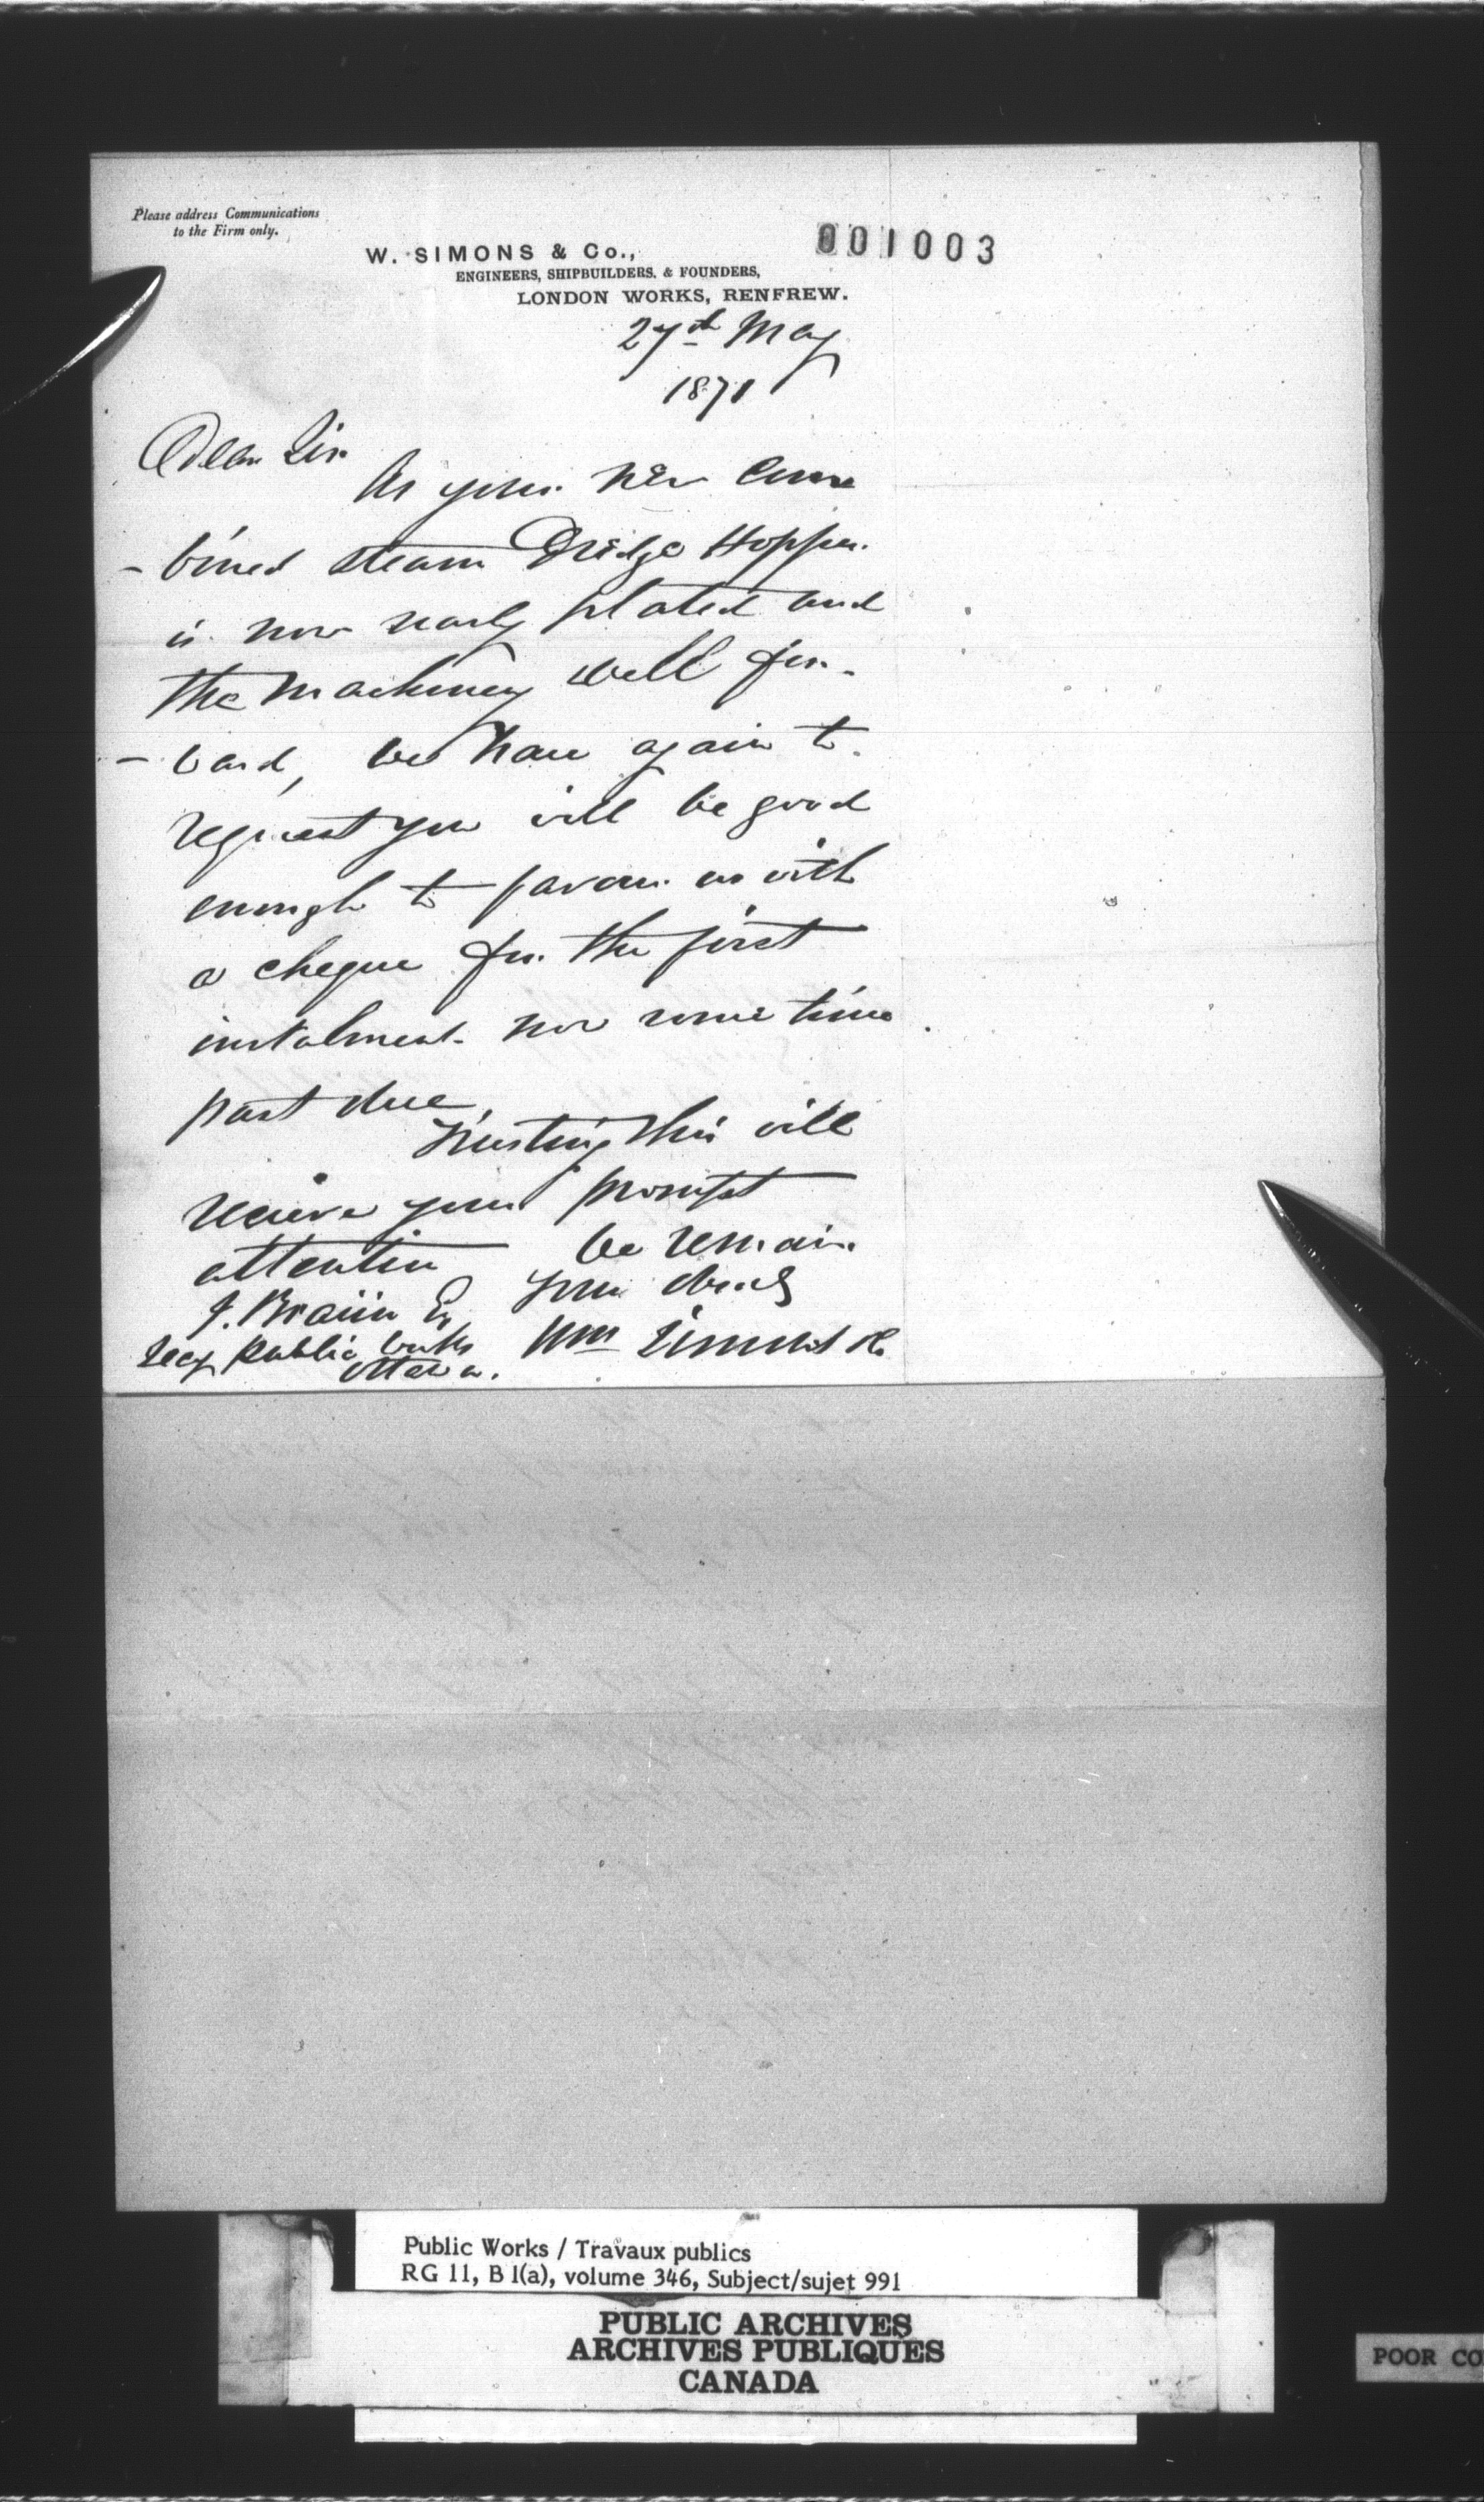 Please address Communications
to the Firm only.
001003
W. SIMONS & Co.,
ENGINEERS, SHIPBUILDERS, & FOUNDERS,
LONDON WORKS, RENFREW.
27th May
1871
Dear Sir
As your new Com
- bined Steam Dredge Hopper
is now nearly plated and
the Machinery well for-
- ward, we have again to
request you will be good
enough to favour us with
a cheque for the first
instalment now some time
past due,
Trusting this will
receive your prompt
attention We remain
F. Braun Esq Yours truly
Secy Public Works Wm Simons & Co
Ottawa.
Public Works / Travaux publics
RG 11, B 1(a), volume 346, Subject/sujet 991
PUBLIC ARCHIVES
ARCHIVES PUBLIQUES
CANADA
POOR CO